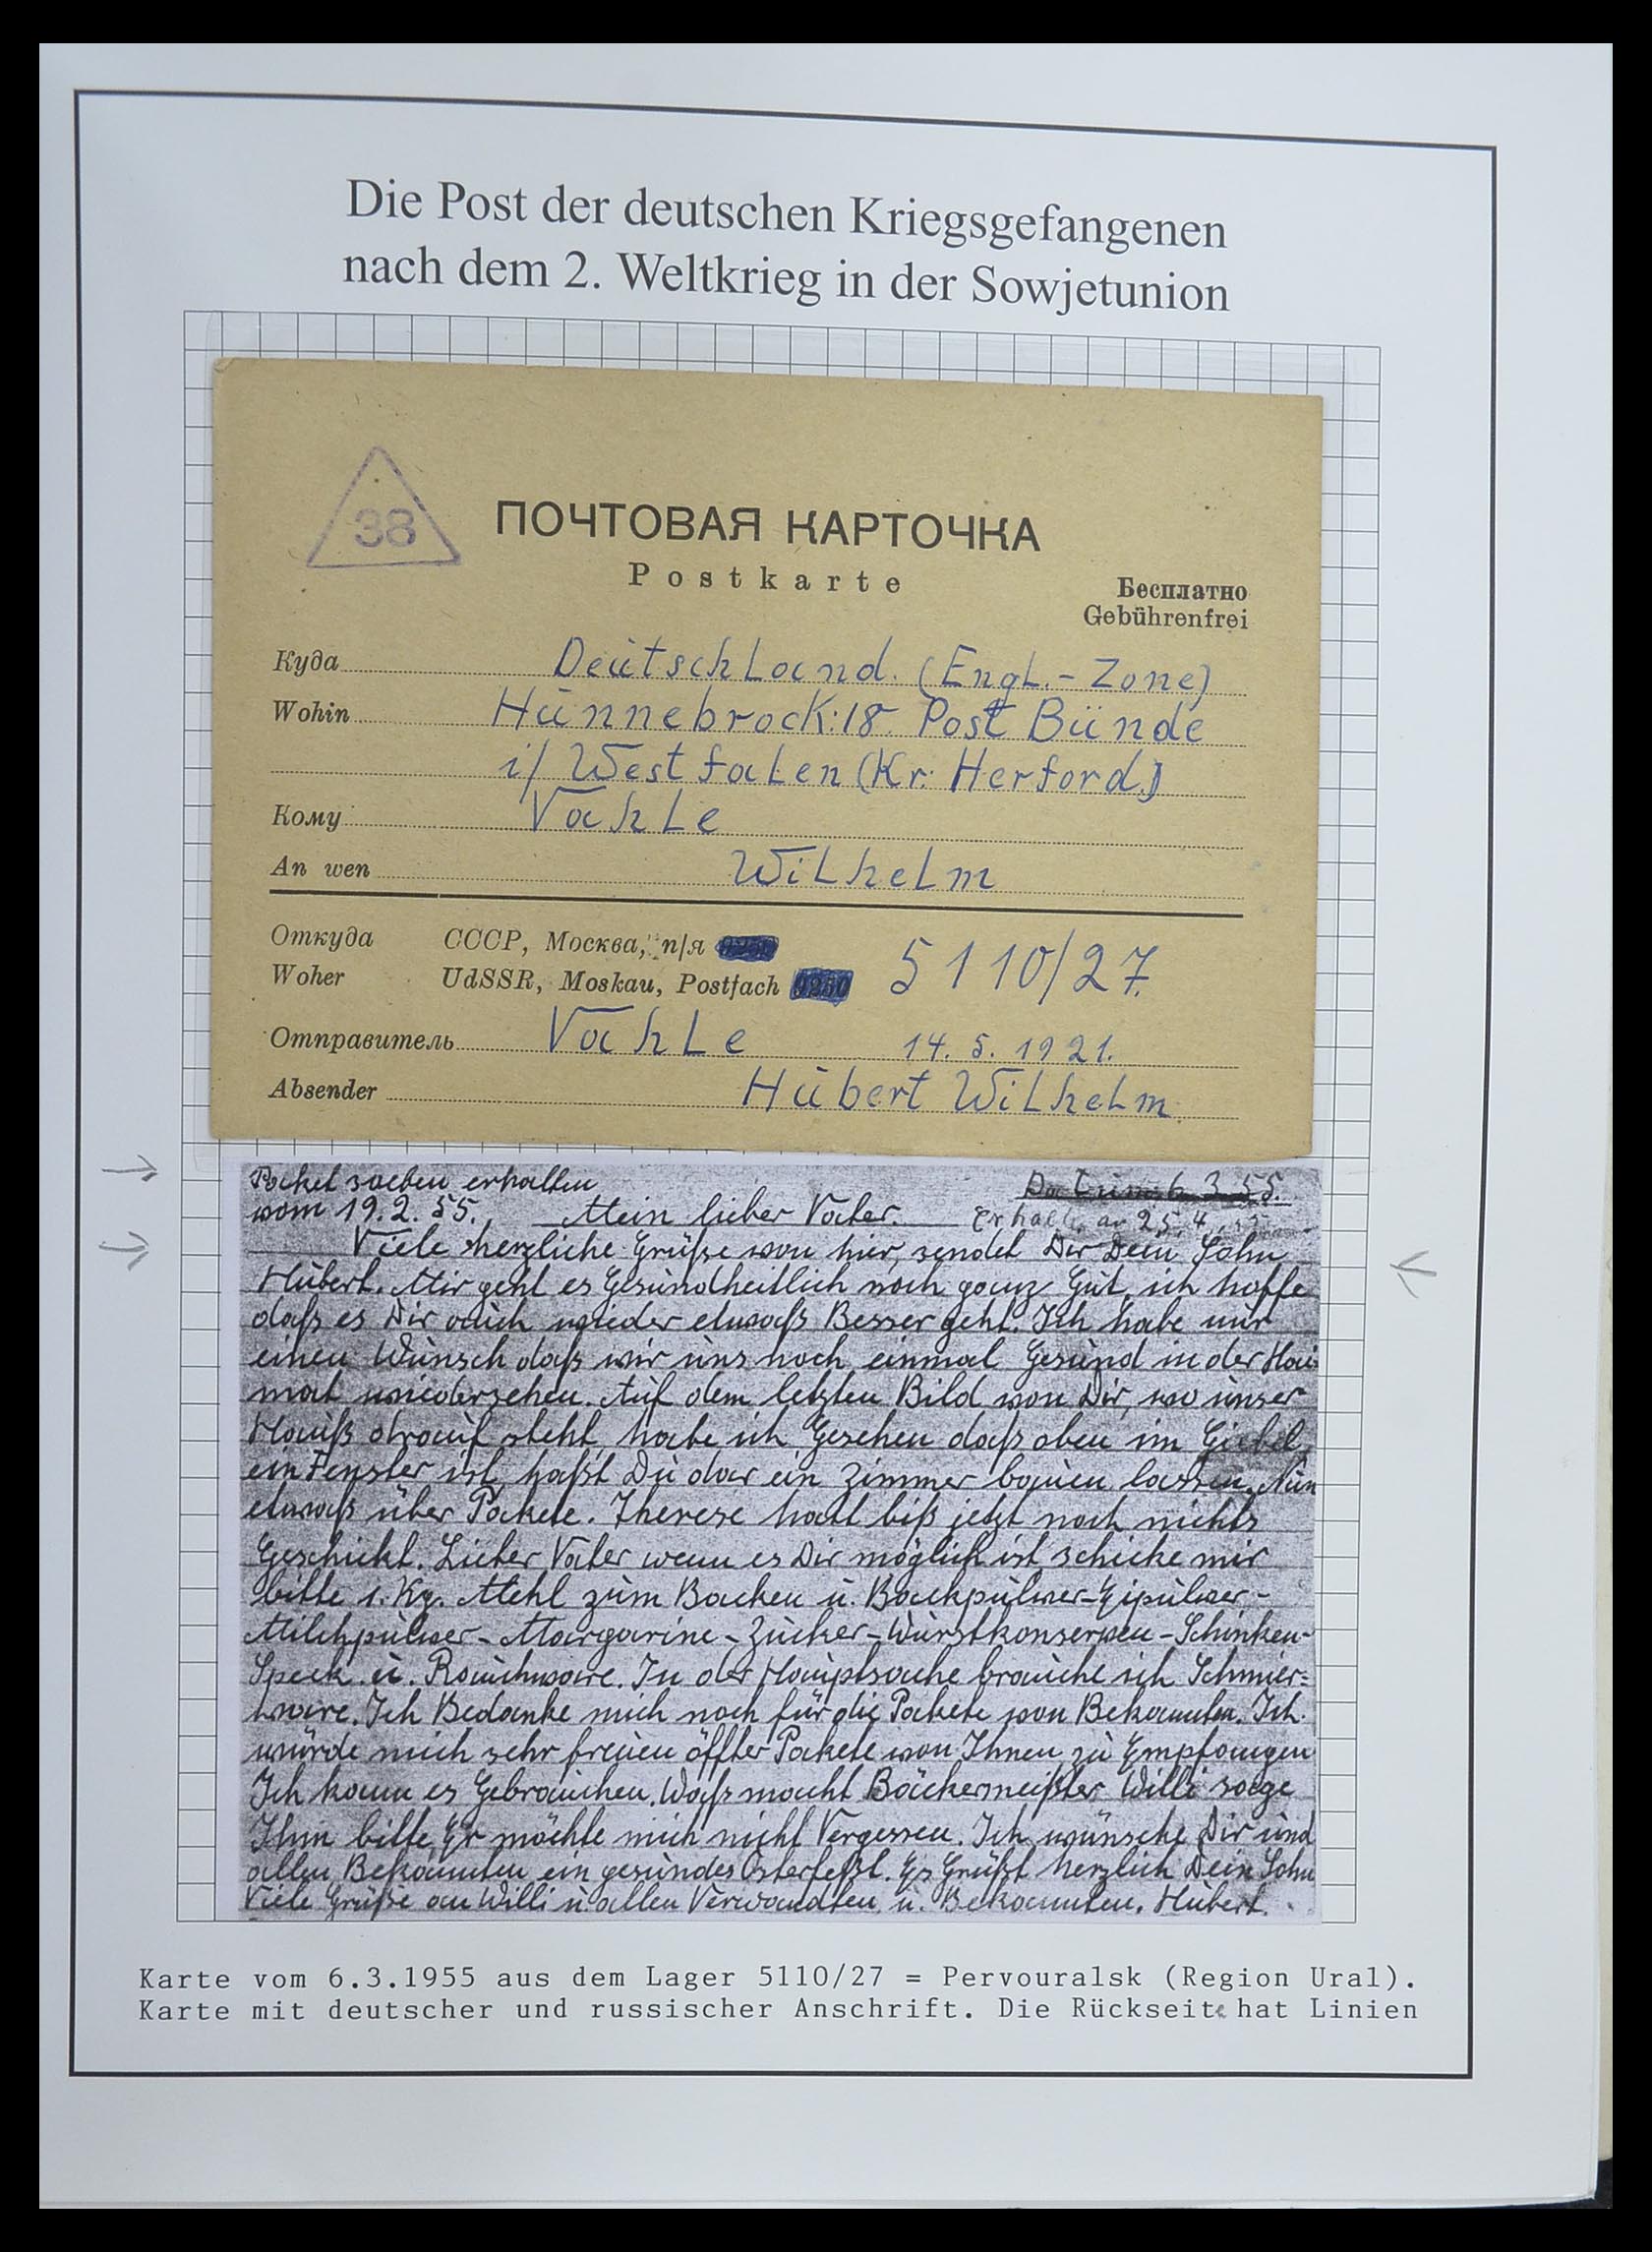 Die Post der deutschen Kriegsgefangenen
nach dem 2. Weltkrieg in der Sowjetunion
38
ПОЧТОВАЯ КАРТОЧКА
Postkarte
Бесплатно
Gebührenfrei
Куда Deutschland. (Engl.-Zone)
Wohin Hünnebrock:18. Post Bünde
i/ Westfalen (Kr. Herford.)
Кому Vahle
An wen Wilhelm
Откуда СССР, Москва, п/я
Woher UdSSR, Moskau, Postfach 5110/27.
Отправитель Vahle 14. 5. 1921.
Absender Hubert Wilhelm
Packet soeben erhalten
vom 19.2.55. Mein lieber Vater. Datum 6.3.55.
Erhalten am 25.4.55
Viele herzliche Grüße von hier, sendet Dir Dein Sohn
Hubert. Mir geht es Gesundheitlich noch ganz Gut, ich hoffe
daß es Dir auch wieder etwaß Besser geht. Ich habe nur
einen Wunsch daß wir uns noch einmal Gesund in der Hei
mat wiedersehen. Auf dem letzten Bild von Dir, wo unser
Hauß drauf steht habe ich Gesehen daß oben im Giebel
ein Fenster ist, haßt Du dar ein Zimmer bauen lassen. Nun
etwaß über Pakete. Therese hatt biß jetzt noch nichts
Geschickt. Lieber Vater wenn es Dir möglich ist schicke mir
bitte 1. Kg. Mehl zum Backen u. Backpulver-Eipulver-
Milchpulver-Margarine-Zucker-Wurstkonserven-Schinken-
Speck u. Rauchware. In der Hauptsache brauche ich Schmier=
ware. Ich Bedanke mich noch für die Pakete von Bekannten. Ich
würde mich sehr freuen öffter Pakete von Ihnen zu Empfangen
Ich kann es Gebrauchen. Waß macht Bäckermeißter Willi sage
Ihm bitte, Er möchte mich nicht Vergessen. Ich wünsche Dir und
allen Bekannten ein gesundes Osterfeßt. Es Grüßt herzlich Dein Sohn
Viele Grüße an Willi u. allen Verwandten, u. Bekannten. Hubert.
Karte vom 6.3.1955 aus dem Lager 5110/27 = Pervouralsk (Region Ural).
Karte mit deutscher und russischer Anschrift. Die Rückseite hat Linien